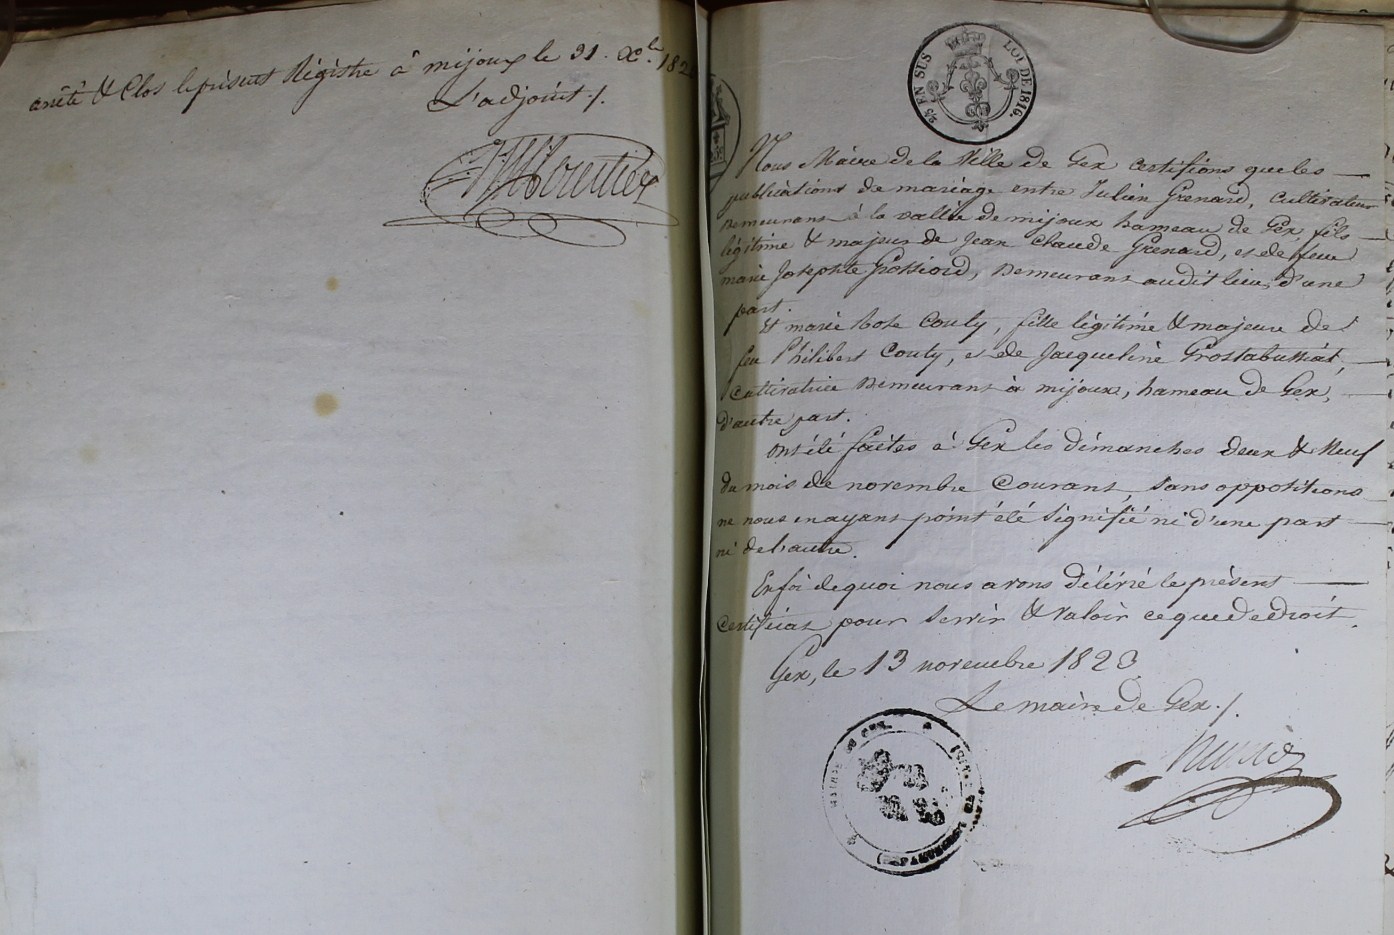 arrêté & Clos le présent Régistre à mijoux le 31. Xbre. 182
L'adjoint /.
25 EN SUS
LOI DE 1816.
Nous Maire de la Ville de Gex certifions que les
publications de mariage entre Julien Grenard, Cultivateur
Demeurant à la vallée de mijoux hameau de Gex, fils
légitime & majeur de Jean Claude Grenard, et de feue
marie Josephte Grossiord, Demeurant audit lieu, d'une
part.
Et marie Rose Couly, fille légitime & majeure de
feu Philibert Couty, et de Jacqueline Grostabussiat,
Cultivatrice Demeurant à mijoux, hameau de Gex,
d'autre part.
ont été faites à Gex les démanches deux & Neuf
du mois de novembre Courant, sans oppositions
ne nous en ayant point été signifié ni d'une part
ni de l'autre.
En foi de quoi nous avons délivré le présent
Certificat pour servir & valoir ce que de droit.
Gex, le 13 novembre 1823
Le maire de Gex /.
MAIRIE DE GEX